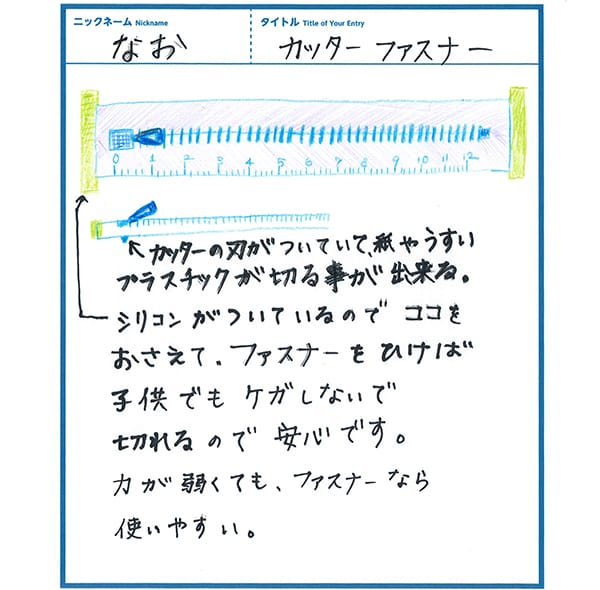 ニックネーム Nickname
なお
タイトル Title of Your Entry
カッターファスナー
0 1 2 3 4 5 6 7 8 9 10 11 12
カッターの刃がついていて、紙やうすい
プラスチックが切る事が出来る。
シリコンがついているので ココを
おさえて、ファスナーをひけば
子供でもケガしないで
切れるので安心です。
力が弱くても、ファスナーなら
使いやすい。